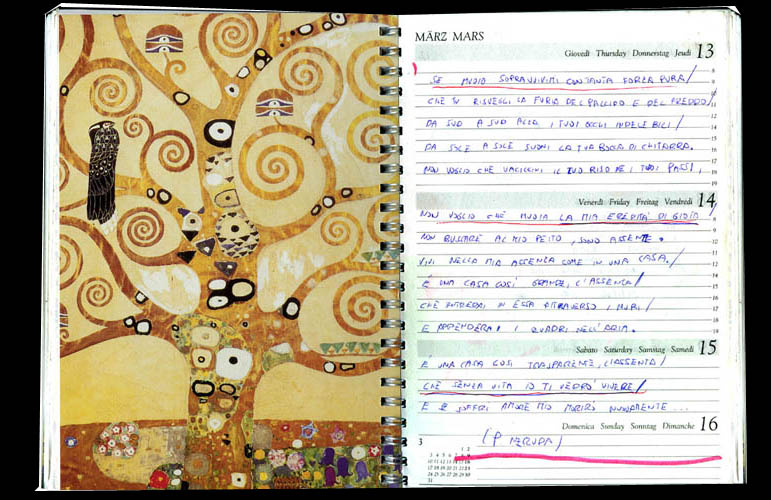 MÄRZ MARS
Giovedì Thursday Donnerstag Jeudi 13
SE MUOIO SOPRAVVIVIMI CON TANTA FORZA PURA/
CHE TU RISVEGLI LA FURIA DEL PALLIDO E DEL FREDDO/
DA SUD A SUD ALZA I TUOI OCCHI INDELEBILI/
DA SOLE A SOLE SUONI LA TUA BOCCA DI CHITARRA.
NON VOGLIO CHE VACILLINI IL TUO RISO NE I TUOI PASSI,
Venerdì Friday Freitag Vendredi 14
NON VOGLIO CHE MUOIA LA MIA EREDITA' DI GIOIA/
NON BUSSARE AL MIO PETTO, SONO ASSENTE.
VIVI NELLA MIA ASSENZA COME IN UNA CASA./
È UNA CASA COSI' GRANDE, L'ASSENZA/
CHE ENTRERAI IN ESSA ATTRAVERSO I MURI/
E APPENDERAI I QUADRI NELL'ARIA.
Sabato Saturday Samstag Samedi 15
È UNA CASA COSI TRASPARENTE, L'ASSENZA/
CHE SENZA VITA IO TI VEDRO' VIVERE/
E SE SOFFRI AMORE MIO MORIRÒ NUOVAMENTE...
Domenica Sunday Sonntag Dimanche 16
(P NERUDA)